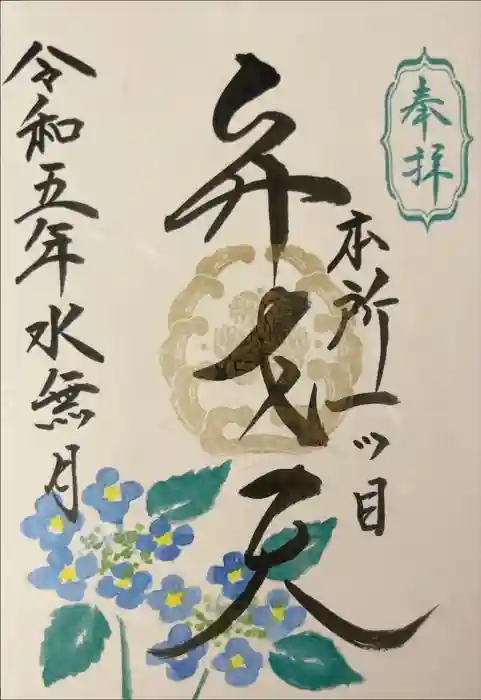 奉拝
本所一ッ目
弁天
令和五年水無月